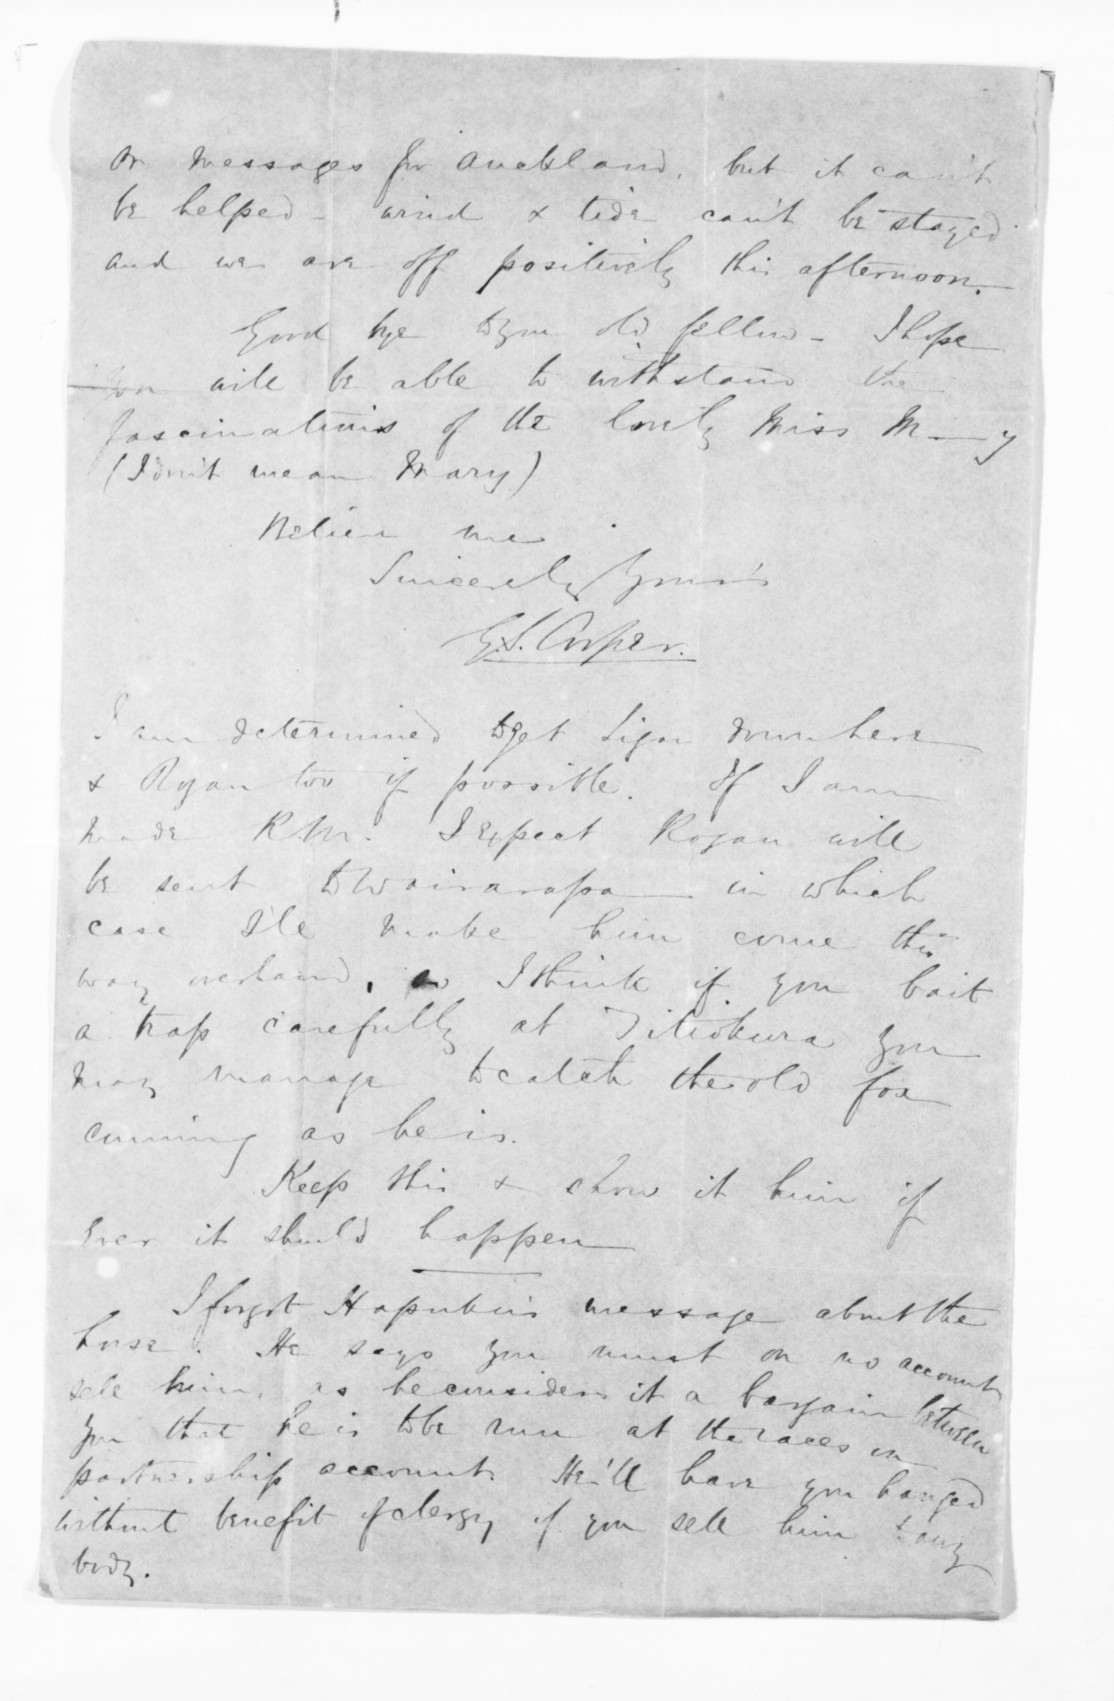 or messages for Auckland, but it can't
be helped - wind & tide can't be stayed
and we are off positively this afternoon.
Good bye to you old fellow - I hope
you will be able to withstand the
fascinations of the lovely Miss M—y
(I don't mean Mary)
Believe me
Sincerely Yours
G.S. Cooper.
I am determined to get Ligar down here
& Rogan too if possible. If I am
made R.M. I expect Rogan will
be sent to Wairarapa in which
case I'le make him come this
way overland, so I think if you bait
a trap carefully at Titiokura you
may manage to catch the old fox
cunning as he is.
Keep this & show it him if
ever it should happen
I forgot Hapuku's message about the
horse. He says you must on no account
sell him, as he considers it a bargain between
you that he is to be run at the races on
partnership account. He'll have you hanged
without benefit of clergy if you sell him to any
body.